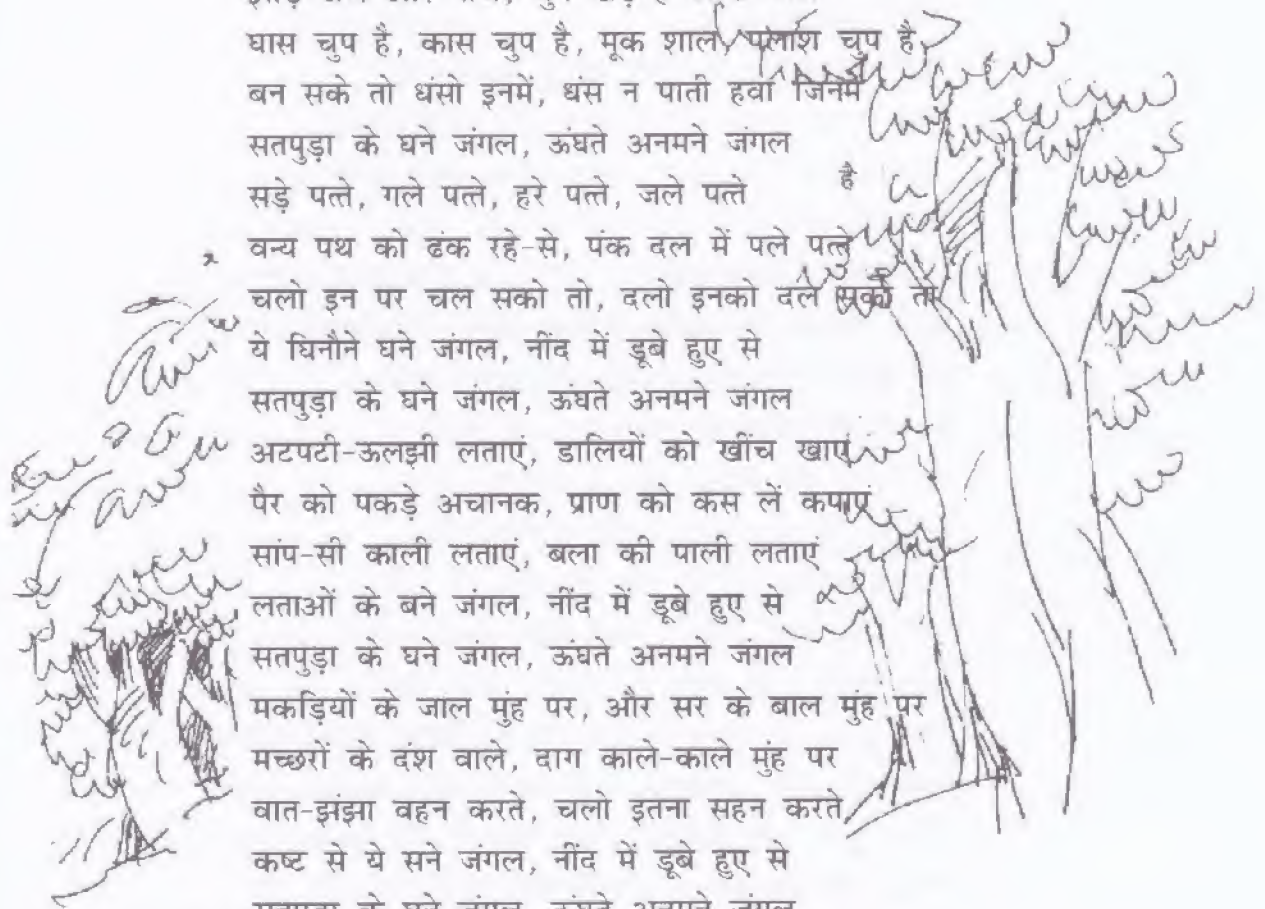 घास चुप है, कास चुप है, मूक शाल, पलाश चुप है
बन सके तो धंसो इनमें, धंस न पाती हवा जिनमें
सतपुड़ा के घने जंगल, ऊंघते अनमने जंगल
सड़े पत्ते, गले पत्ते, हरे पत्ते, जले पत्ते
है
वन्य पथ को ढंक रहे-से, पंक दल में पले पत्ते
चलो इन पर चल सको तो, दलो इनको दल सको तो
ये घिनौने घने जंगल, नींद में डूबे हुए से
सतपुड़ा के घने जंगल, ऊंघते अनमने जंगल
अटपटी-ऊलझी लताएं, डालियों को खींच खाएं
पैर को पकड़े अचानक, प्राण को कस लें कपाएं
सांप-सी काली लताएं, बला की पाली लताएं
लताओं के बने जंगल, नींद में डूबे हुए से
सतपुड़ा के घने जंगल, ऊंघते अनमने जंगल
मकड़ियों के जाल मुंह पर, और सर के बाल मुंह पर
मच्छरों के दंश वाले, दाग काले-काले मुंह पर
वात-झंझा वहन करते, चलो इतना सहन करते
कष्ट से ये सने जंगल, नींद में डूबे हुए से
सतपुड़ा के घने जंगल, ऊंघते अनमने जंगल